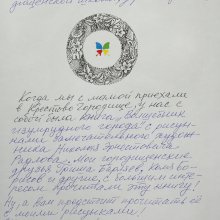 Когда мы с мамой приехали
в Крестово Городище, у нас с
собой была книга „Волшебник
изумрудного города" с рисун-
ками замечательного худож-
ника Николая Эрнестовича
Радлова. Мои городищенские
друзья Гриша
и другие, с большим инте-
ресом прочитали эту книгу.
Ну, а вам предстоит прочитать её
с моими рисунками!